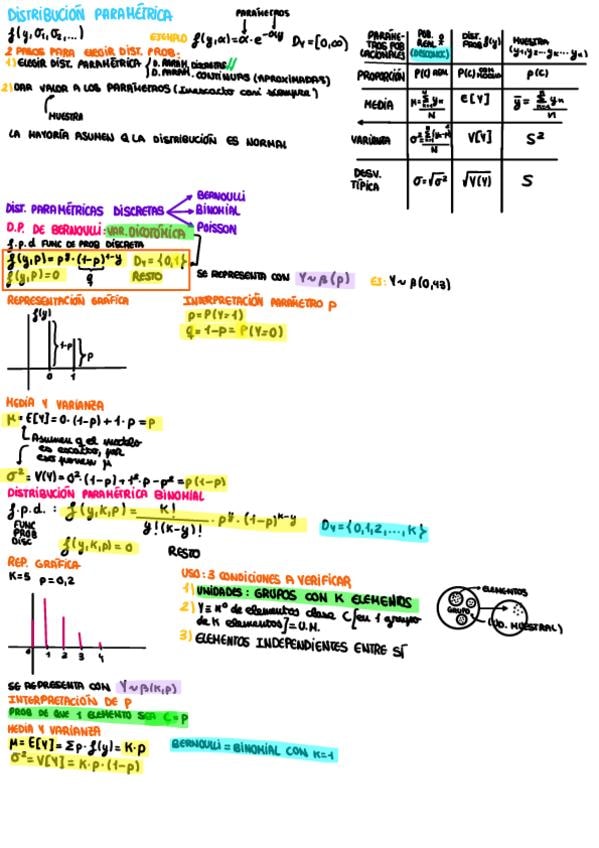 DISTRIBUCIÓN PARAMÉTRICA
PARÁMETROS
f(y,σ₁,σ₂,...)
EJEMPLO f(y,α)=α·e^-αy Dy=[0,∞)
2 PASOS PARA ELEGIR DIST. PROB:
1) ELEGIR DIST. PARAMÉTRICA { D. PARAM. DISCRETAS //
D. PARAM. CONTINUAS (APROXIMADAS)
2) DAR VALOR A LOS PARÁMETROS (Inexacto casi siempre)
MUESTRA
LA MAYORÍA ASUMEN Q LA DISTRIBUCIÓN ES NORMAL
PARÁMETROS POBLACIONALES
POB. REAL (DESCONOC.)
DIST. PROB f(y)
MUESTRA (y₁,y₂...yₖ...yₙ)
PROPORCIÓN P(C) P(C) P(C)
MEDIA e[Y]
VARIANZA V[Y] S²
DESV. TÍPICA σ=√σ² √V(Y) S
DIST. PARAMÉTRICAS DISCRETAS
BERNOULLI
BINOMIAL
POISSON
D.P. DE BERNOULLI: VAR. DICOTÓMICA
f.p.d FUNC DE PROB DISCRETA
f(y,p)=p^y·(1-p)^1-y Dy={0,1}
q
f(y,p)=0 RESTO
SE REPRESENTA CON Y~β(p) EJ: Y~β(0,43)
REPRESENTACIÓN GRÁFICA
f(y)
1-p
p
0 1
INTERPRETACIÓN PARÁMETRO p
p=P(Y=1)
q=1-p=P(Y=0)
MEDIA Y VARIANZA
μ=E[Y]=0·(1-p)+1·p=p
Asumen q el modelo es exacto, por eso ponen μ
σ²=V(Y)=0²·(1-p)+1²·p-p²=p(1-p)
DISTRIBUCIÓN PARAMÉTRICA BINOMIAL
f.p.d.: f(y,k,p)=K!/y!(k-y)!·p^y·(1-p)^k-y Dy={0,1,2,...,K}
FUNC PROB DISC
f(y,k,p)=0 RESTO
REP. GRÁFICA
K=5 p=0,2
0 1 2 3 4
USO: 3 CONDICIONES A VERIFICAR
1) UNIDADES: GRUPOS CON K ELEMENTOS
2) Y=Nº de elementos clase C [en 1 grupo de K elementos]=U.M.
3) ELEMENTOS INDEPENDIENTES ENTRE SÍ
ELEMENTOS
GRUPO
(UD. MUESTRAL)
SE REPRESENTA CON Y~β(K,p)
INTERPRETACIÓN DE P
PROB DE QUE 1 ELEMENTO SEA C=p
MEDIA Y VARIANZA
μ=E[Y]=Σp·f(y)=K·p
σ²=V[Y]=K·p·(1-p)
BERNOULLI=BINOMIAL CON K=1